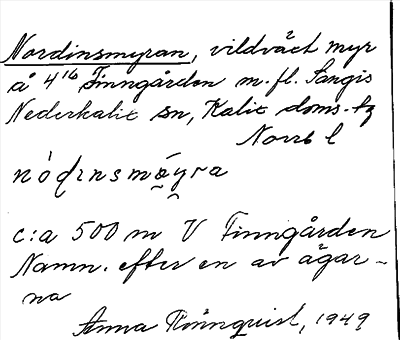 Nordinsmyran, vildväxt myr
å 4¹⁶ Finngården m.fl. Sangis
Nederkalix sn, Kalix doms. tg
Norrb l
nódɩnsmøyra
c:a 500 m V Finngården
Namn. efter en av ägar-
na
Anna Rönnquist, 1949